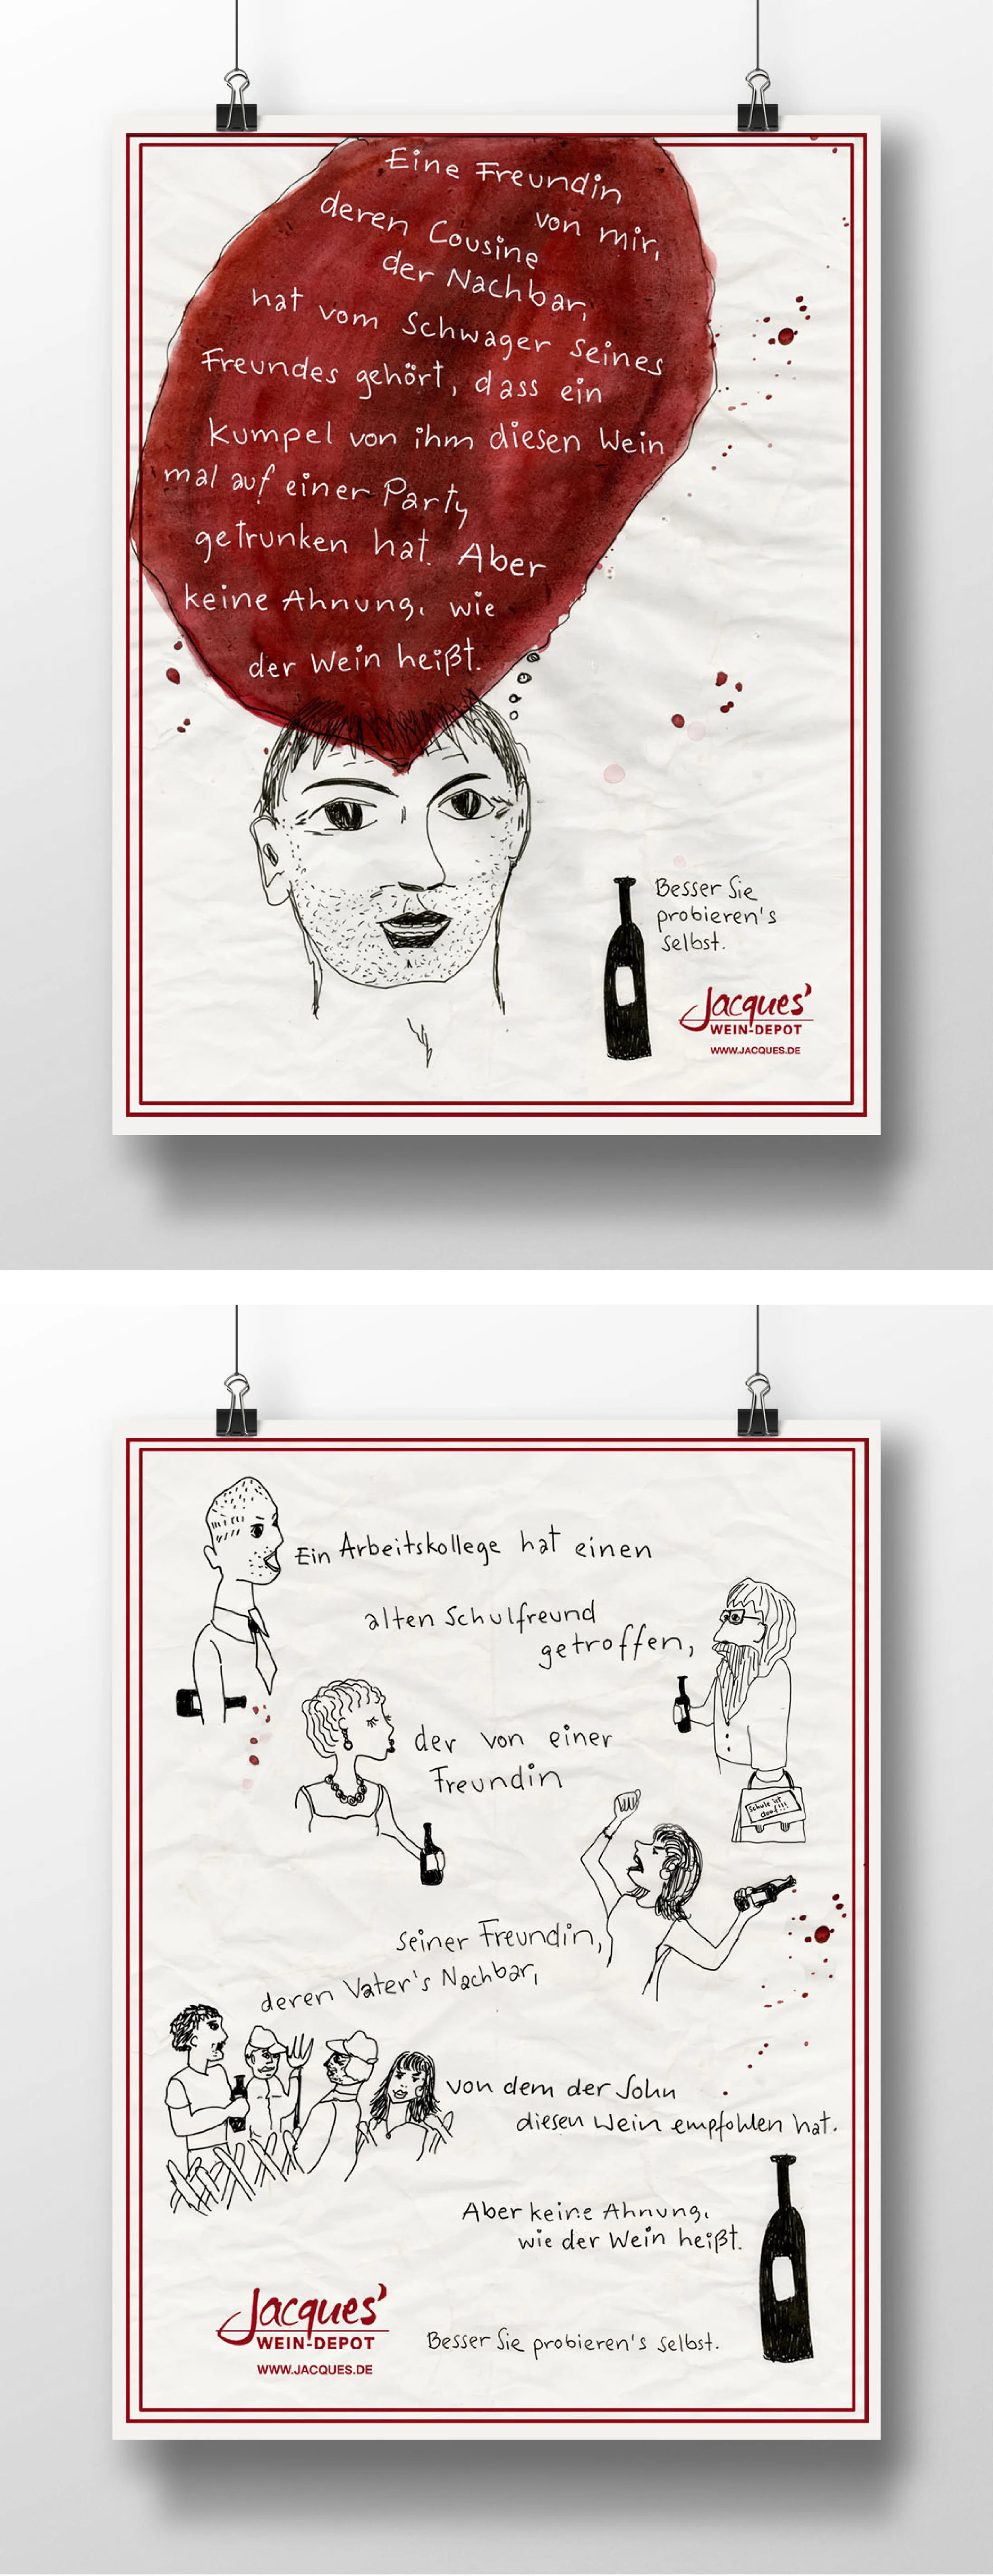 Eine Freundin
von mir,
deren Cousine
der Nachbar,
hat vom Schwager seines
Freundes gehört, dass ein
Kumpel von ihm diesen Wein
mal auf einer Party
getrunken hat. Aber
keine Ahnung, wie
der Wein heißt.
Besser Sie
probieren's
selbst.
Jacques'
WEIN-DEPOT
WWW.JACQUES.DE
Ein Arbeitskollege hat einen
alten Schulfreund
getroffen,
der von einer
Freundin
Schule ist
doof!!!
seiner Freundin,
deren Vater's Nachbar,
von dem der Sohn
diesen Wein empfohlen hat.
Aber keine Ahnung,
wie der Wein heißt.
Jacques'
WEIN-DEPOT
WWW.JACQUES.DE
Besser Sie probieren's selbst.